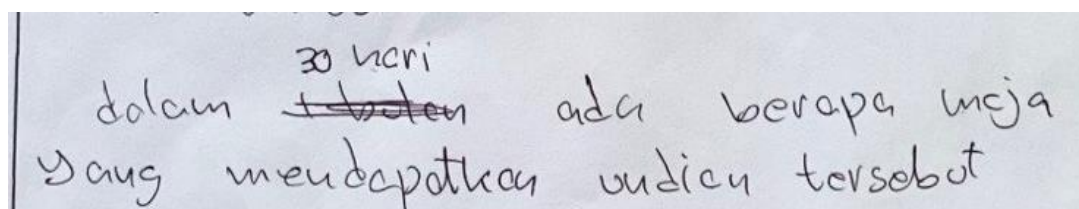 30 hari
dalam 1 bulan ada berapa meja
yang mendapatkan undian tersebut